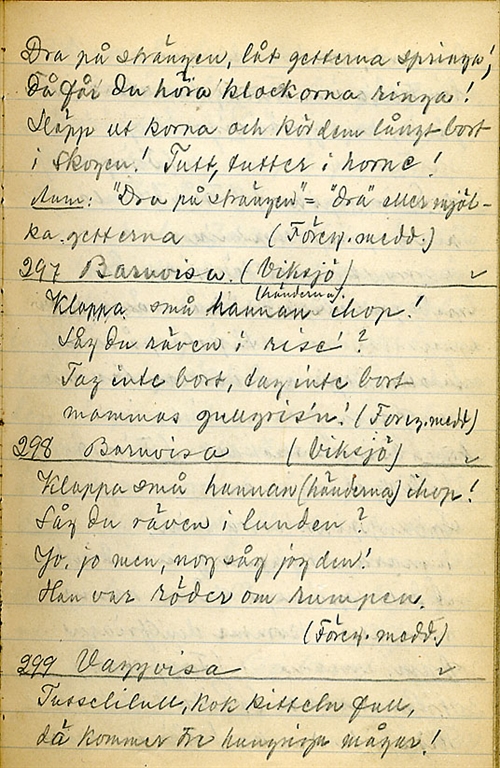 Dra på strängen, låt getterna springa,
då får du höra klockorna ringa!
Släpp ut korna och kör dem långt bort
i skogen! Tutt, tutter i horne!
Anm: "Dra på strängen" = "dra" eller mjöl-
ka getterna (Föreg. medd.)
297 Barnvisa. (Viksjö)
Klappa små hannan (händerna) ihop!
Såg du räven i rise'?
Tag inte bort, tag inte bort
mammas gullgris'n! (Föreg. medd)
298 Barnvisa (Viksjö)
Klappa små hannan (händerna) ihop!
Såg du räven i lunden?
Jo, jo men, nog såg jag den!
Han var röder om rumpen.
(Föreg. medd.)
299 Vaggvisa
Tusselilull, kok kitteln full,
då kommer tre hungriga mågar!